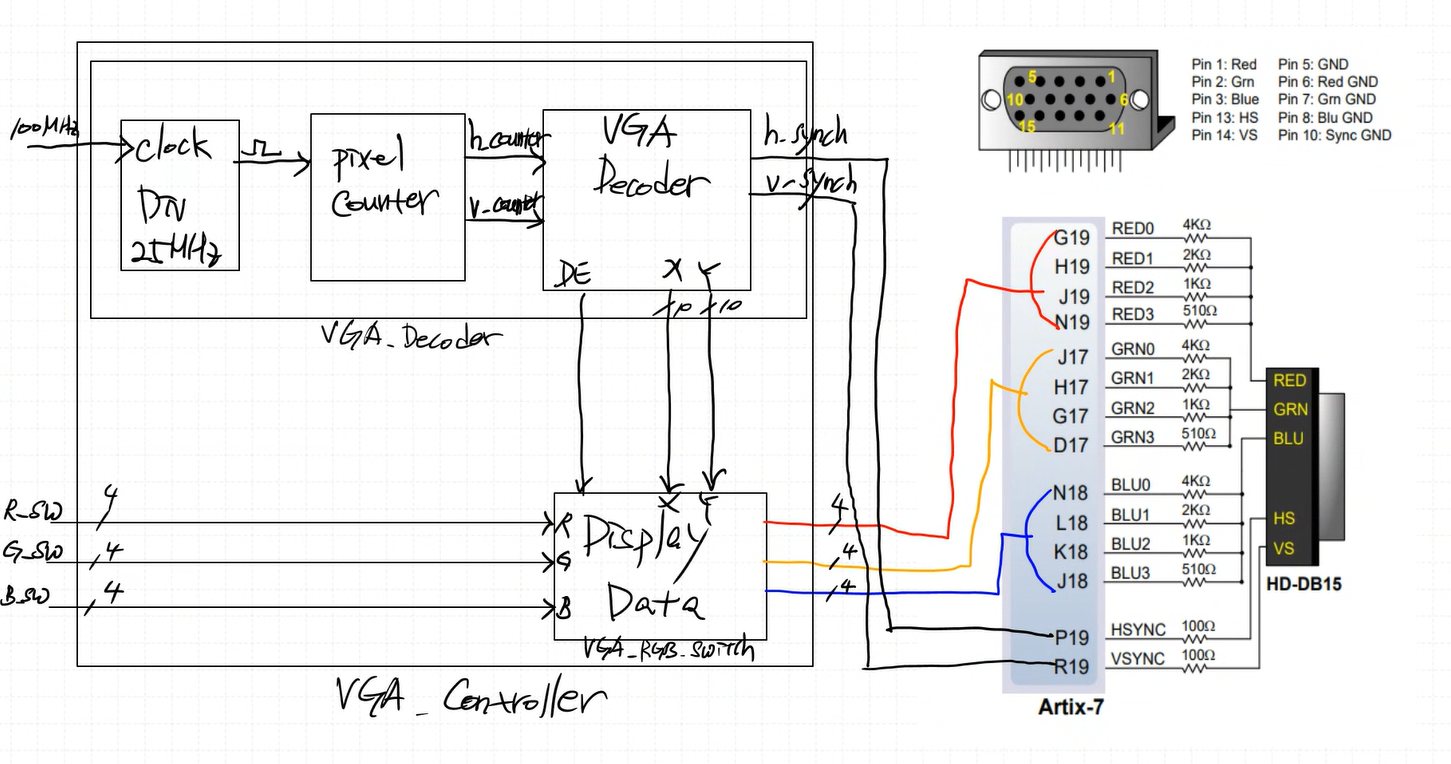 100MHz
clock
DIV
25MHz
pixel
counter
h_counter
v_counter
VGA
Decoder
DE
X
Y
10
10
h_synch
v_synch
VGA_Decoder
R_SW
4
G_SW
4
B_SW
4
X
Y
R
G
B
Display
Data
VGA_RGB_Switch
4
4
4
VGA_Controller
5
1
10
6
15
11
Pin 1: Red
Pin 2: Grn
Pin 3: Blue
Pin 13: HS
Pin 14: VS
Pin 5: GND
Pin 6: Red GND
Pin 7: Grn GND
Pin 8: Blu GND
Pin 10: Sync GND
G19 RED0 4KΩ
H19 RED1 2KΩ
J19 RED2 1KΩ
N19 RED3 510Ω
J17 GRN0 4KΩ
H17 GRN1 2KΩ
G17 GRN2 1KΩ
D17 GRN3 510Ω
N18 BLU0 4KΩ
L18 BLU1 2KΩ
K18 BLU2 1KΩ
J18 BLU3 510Ω
P19 HSYNC 100Ω
R19 VSYNC 100Ω
Artix-7
RED
GRN
BLU
HS
VS
HD-DB15